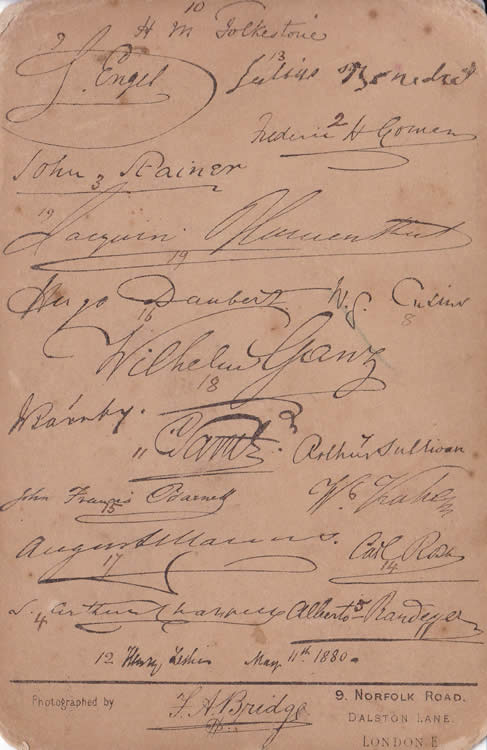 10
H M Folkestone
9 L. Engel
13 Julius Benedict
2 Frederic H Cowen
John Stainer
3
19 Jacques Blumenthal
19
Hugo Daubert W. G. Cusins
16 8
Wilhelm Ganz
18
J Barnby.
Arthur Sullivan
7
John Francis Barnett W. Kuhe
15 6
August Manns. Carl Rosa
17 14
4 Arthur Chappell Alberto Randegger
5
12. Henry Leslie May 11th 1880.
Photographed by F. A. Bridge 9. NORFOLK ROAD.
DALSTON LANE.
LONDON E